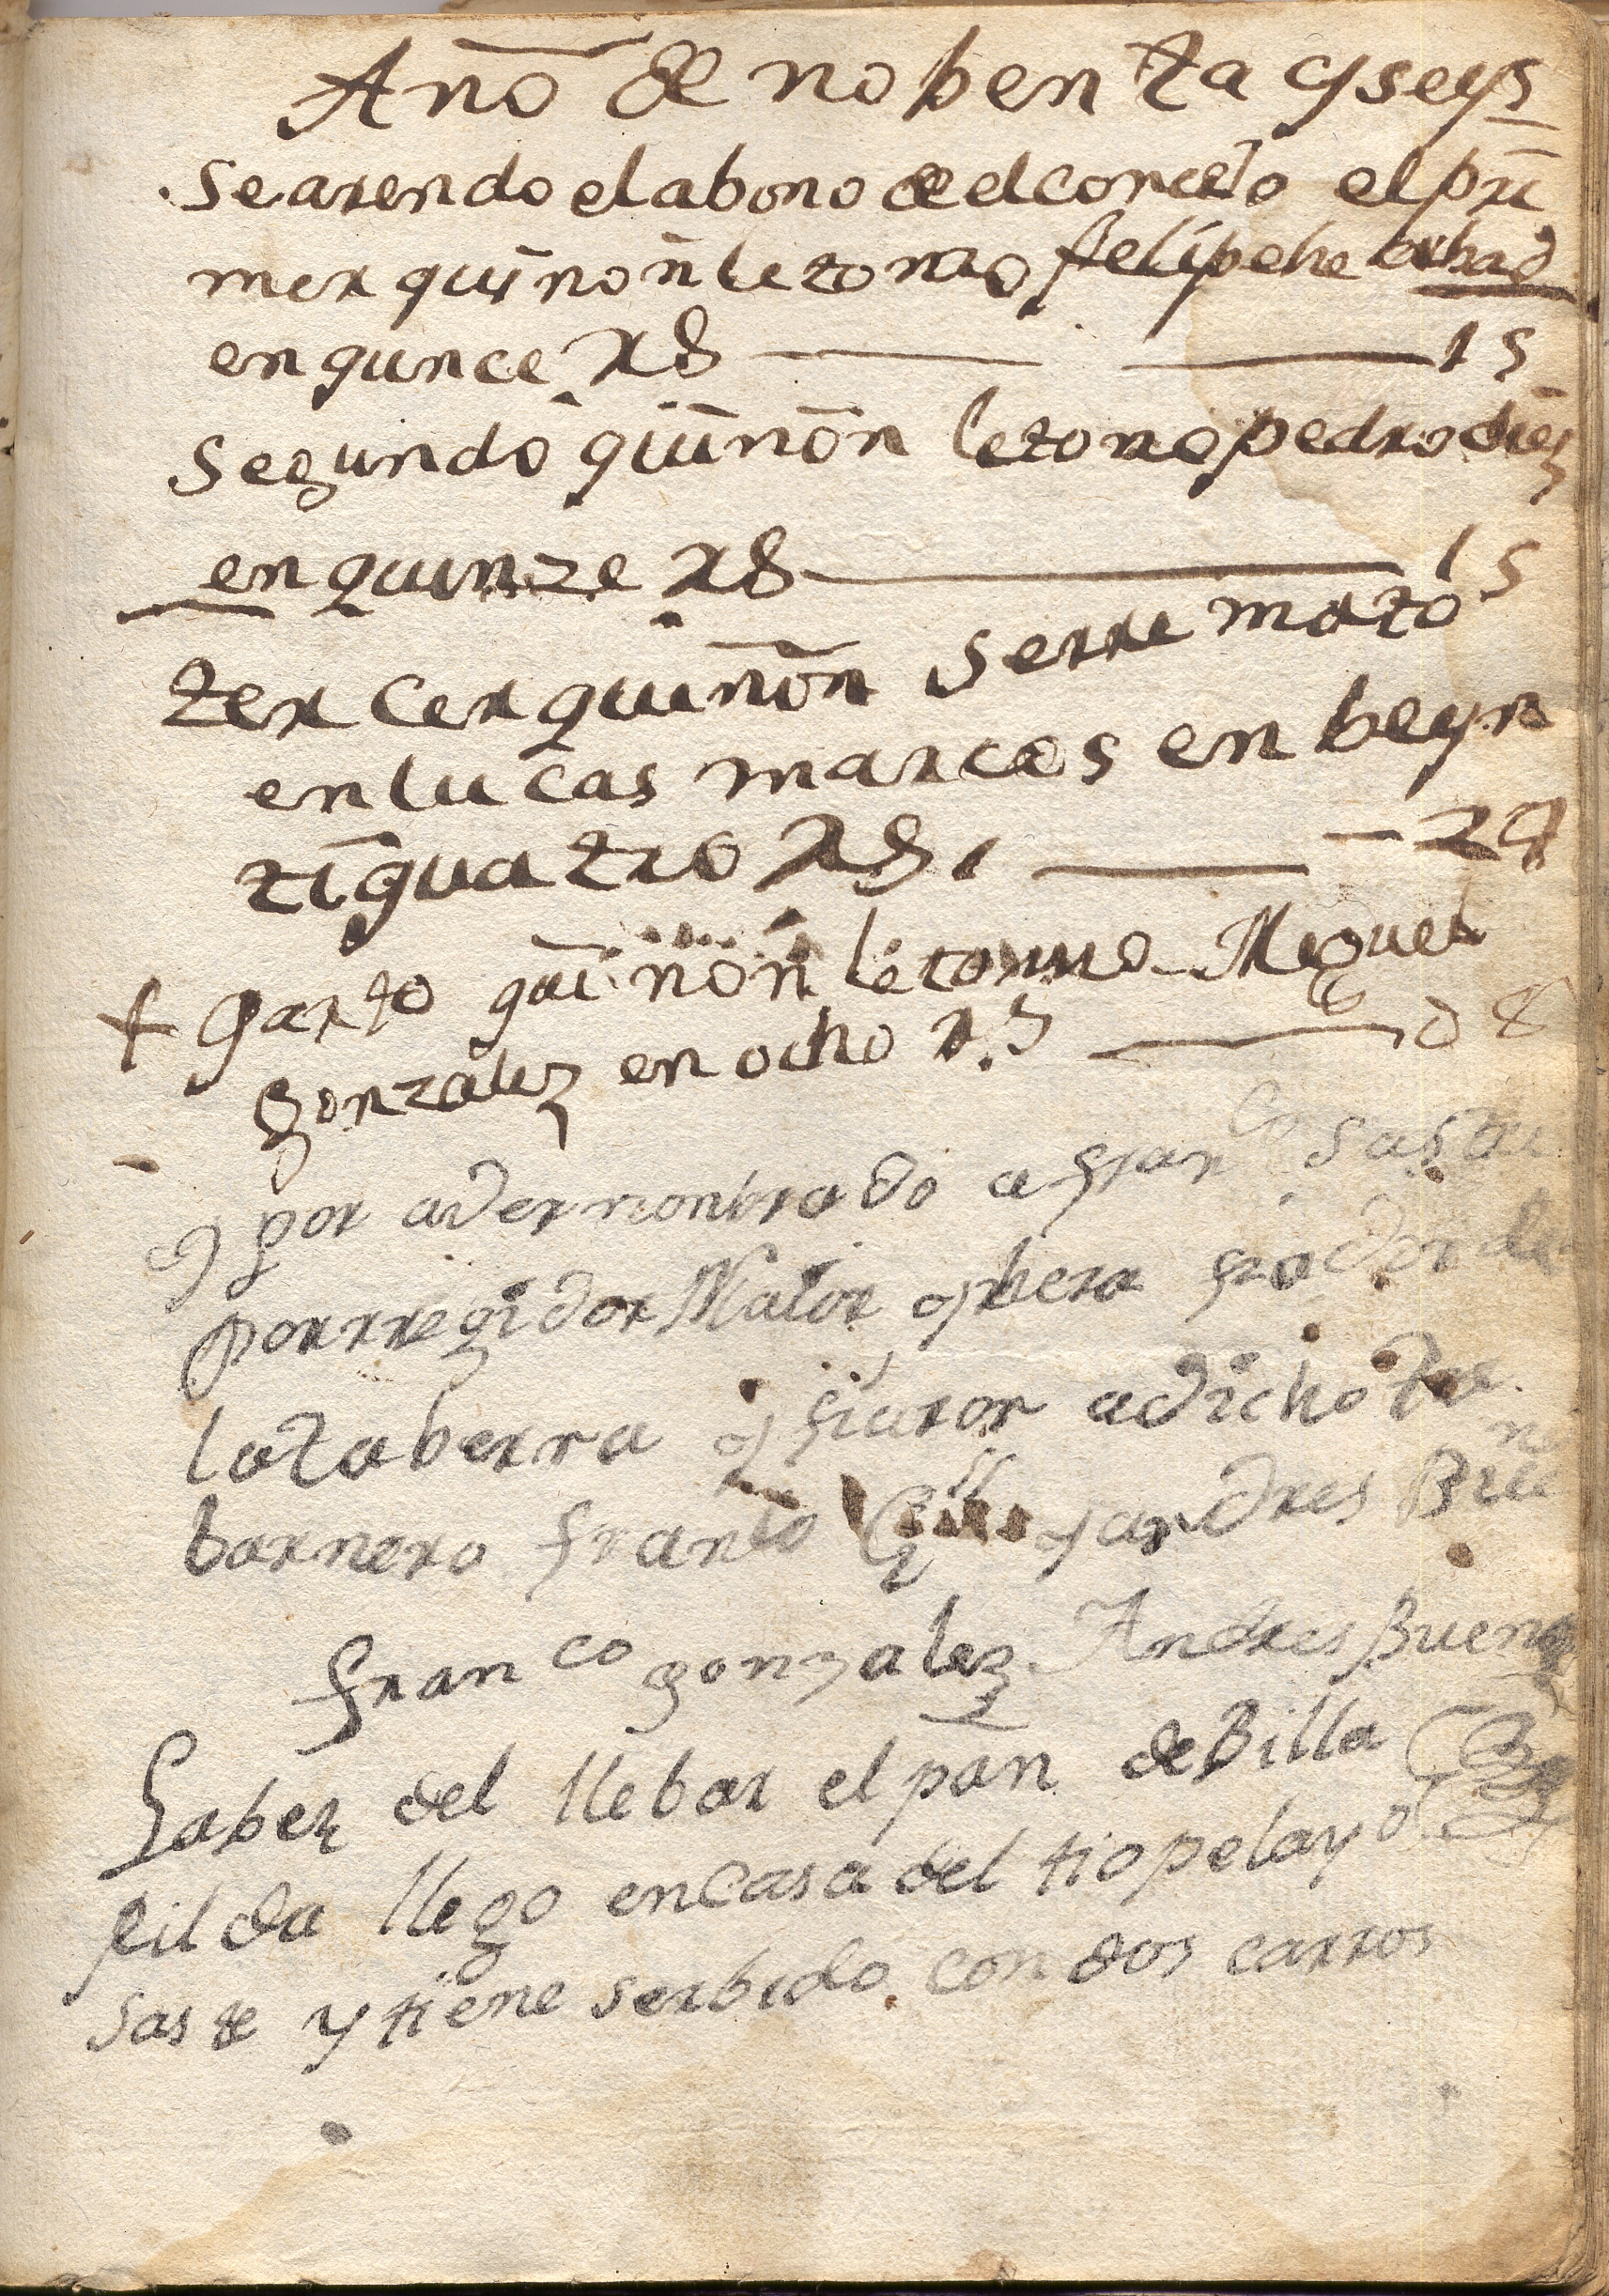 Año de nobenta y seys
Se arendo el abono de el concejo el pri
mer quiñon le tomo felipe
en qunce Rs 15
Segundo quiñon le tomo pedro diez
en quinze Rs 15
tercer quiñon serre mato
en lucas marcos en beyn
tiquatro Rs 24
+ quarto quiñon le tomo Miguel
gonzalez en ocho Rs 08
y por aver nonbrado a Franco Saste
por rregidor Maior y hera fiador de
la taberna y fiaron a dicho Ta
barnero Franco y andres
Franco gonzalez Andres Bueno
Saber del llebar el pan de Billa
fil da llego en casa del tio pelayo
Saste y tiene serbido con dos carros